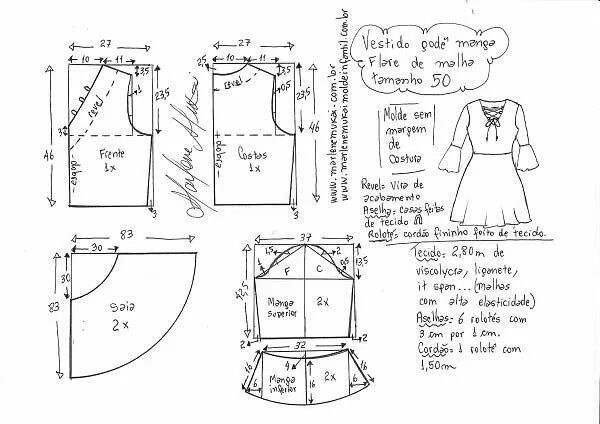 Vestido godê manga
Flare de malha
tamanho 50
27
10
11
3,5
1
23,5
revel
3
46
dobra
Frente
1x
3
Marlene Mukai
27
2,5
10
11
3,5
0,5
23,5
revel
46
dobra
Costas
1x
3
www.marlenemukai.com.br
www.marlenemukai.moldeinfantil.com.br
Molde sem
margem
de
costura
Revel= Vira de
acabamento
Aselha= casas feitas
de tecido
Rolotês= cordão fininho feito de tecido.
Tecido: 2,80m de
viscolycra, liganete,
it span... (malhas
com alta elasticidade)
Aselhas: 6 rolotês com
3 cm por 1 cm.
Cordão: 1 rolotê com
1,50m
83
30
30
83
Saia
2x
37
1,5
2
1
0,5
13,5
F
C
42,5
Manga
superior
2x
2
2
32
16
16
4
6
16
6
Manga
inferior
2x